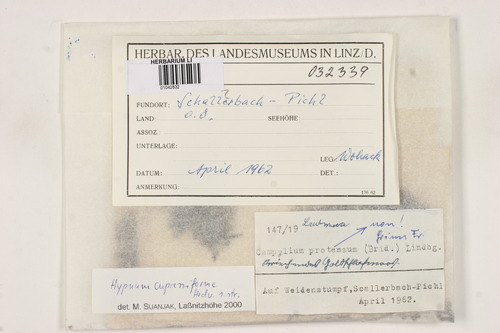 HERBAR. DES LANDESMUSEUMS IN LINZ/D.
HERBARIUM LI
032339
FUNDORT: Schallerbach - Pichl
LAND: O.Ö. SEEHÖHE
ASSOZ.
UNTERLAGE:
LEG.
DATUM: April 1962 DET.:
ANMERKUNG:
147/19 non!
Campylium protensum (Brid.) Lindng.
Auf Weidenstumpf, Scallerbach-Pichl
April 1962.
Hypnum cupressiforme
Hedw. s. str.
det. M. SUANJAK, Laßnitzhöhe 2000